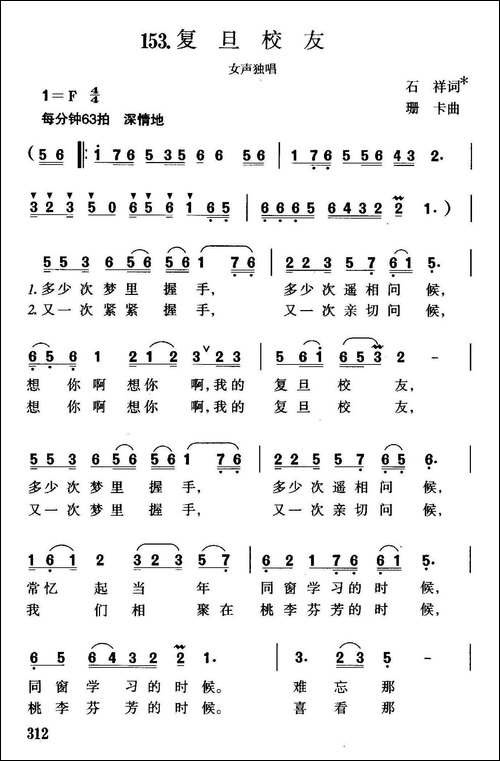 153.复旦校友
女声独唱
1=F 4/4
石 祥词*
每分钟63拍 深情地
珊 卡曲
(56 ‖: 1765356 6 56 | 176556643 2·
323 50 656165 | 66656432 2 1·)
553 65656 1 76 | 223576 61 5·
1.多少次梦里握手, 多少次遥相问候,
2.又一次紧紧握手, 又一次亲切问候,
656 1 212 3ˇ23 | 561 653 2 -
想你啊想你啊,我的复旦校友,
想你啊想你啊,我的复旦校友,
553 65656 1 76 | 22355765 6·
多少次梦里握手, 多少次遥相问候,
又一次紧紧握手, 又一次亲切问候,
161 2 323 57 | 62176 61 2·
常忆起当年同窗学习的时候,
我们相聚在桃李芬芳的时候,
65 64322 2 1· | 3· 23 5 -
同窗学习的时候。 难忘那
桃李芬芳的时候。 喜看那
312